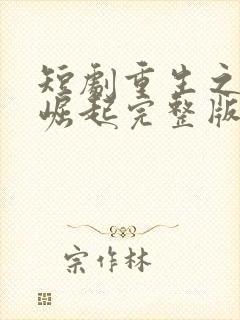 短剧重生之
崛起完整版
宗作林